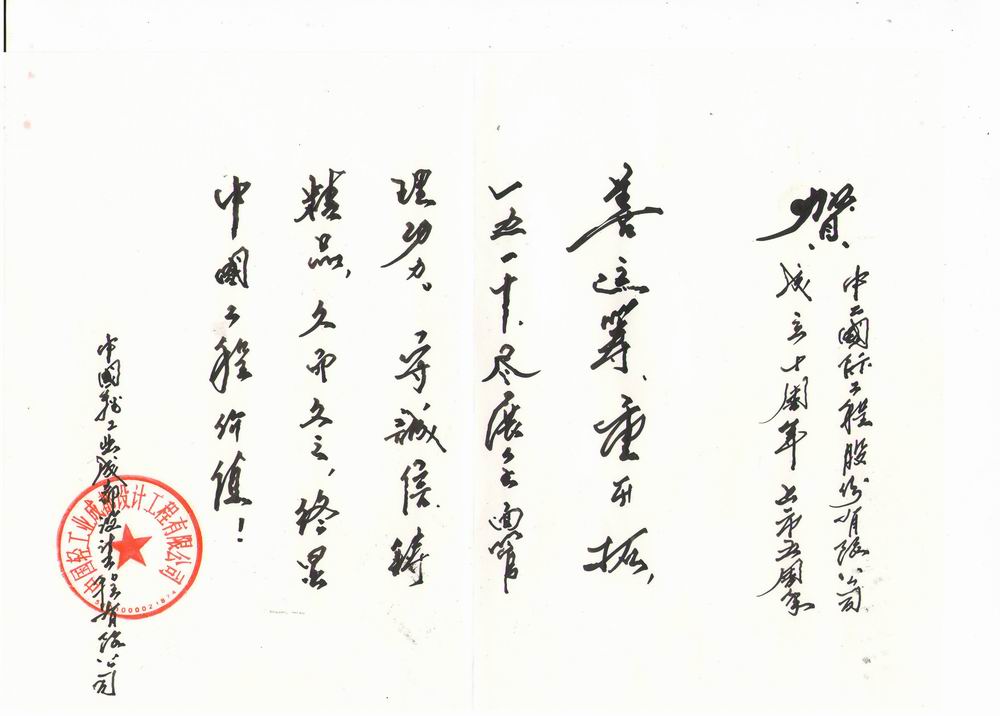 賀
中工國际工程股份有限公司
成立十周年上市五周年
善运筹、重开拓,
一五一十、尽展全面管
理功力。守誠信、鑄
精品,久而久之,终显
中國工程价值!
中國轻工业成都设计工程有限公司
中国轻工业成都设计工程有限公司